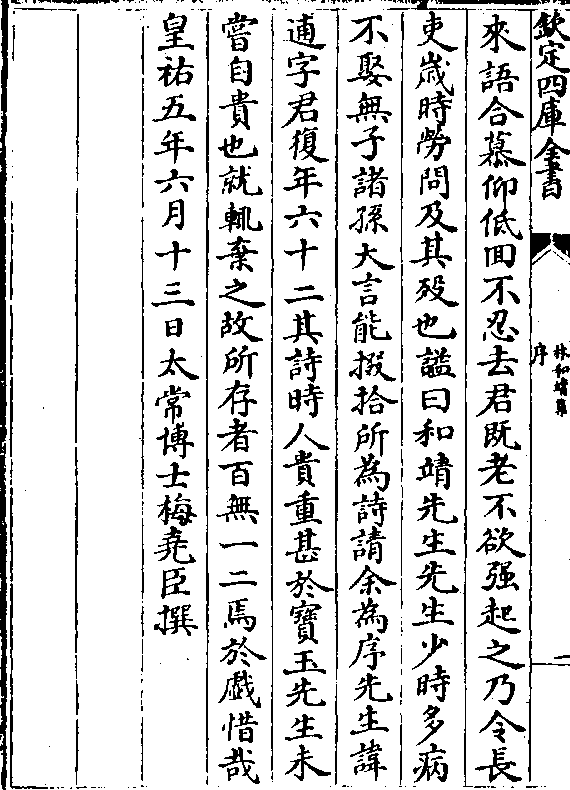 欽定四庫全書
林和靖集
序
來語合慕仰低回不忍去君既老不欲强起之乃令長
吏歲時勞問及其殁也謚曰和靖先生先生少時多病
不娶無子諸孫大言能掇拾所為詩請余為序先生諱
逋字君復年六十二其詩時人貴重甚於寶玉先生未
嘗自貴也就輒棄之故所存者百無一二焉於戲惜哉
皇祐五年六月十三日太常博士梅堯臣撰
一